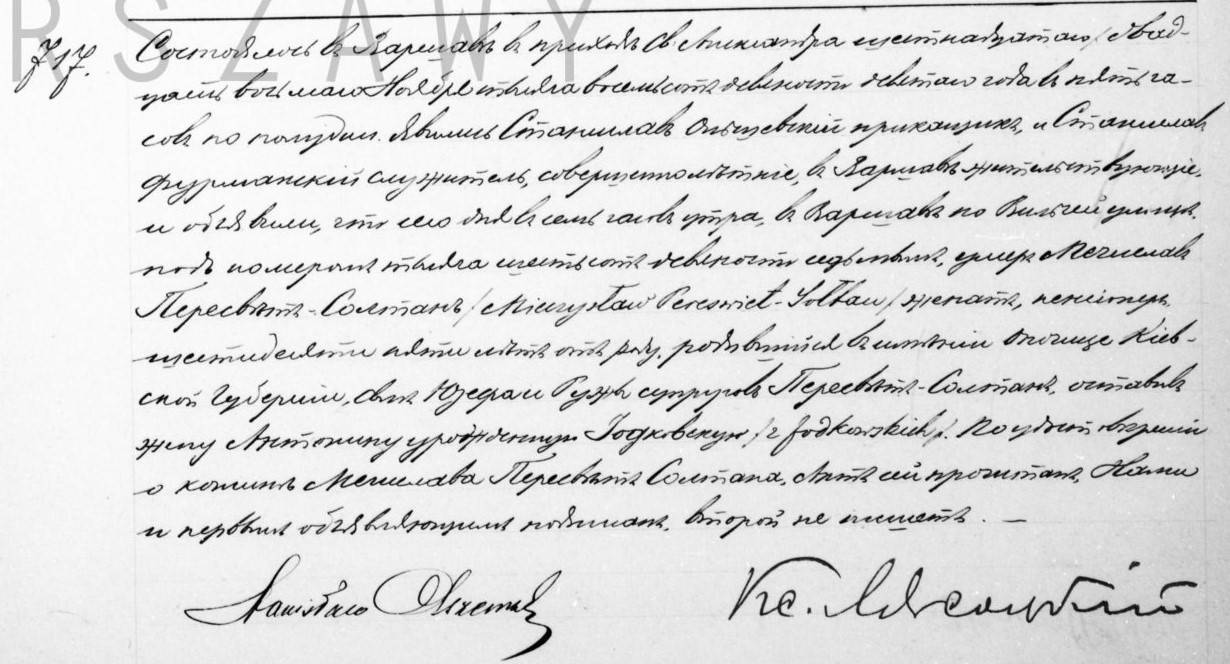 RSZAWY
717.
Состоялось въ Варшавѣ въ приходѣ Св. Александра шестнадцатаго / двад-
цать восьмаго Ноября тысяча восемьсотъ девяносто девятаго года въ пять ча-
совъ по полудни. Явились Станиславъ Ольшевскій прикащикъ, и Станиславъ
Фурманскій служитель, совершеннолѣтніе, въ Варшавѣ жительствующіе,
и объявили, что сего дня въ семь часовъ утра, въ Варшавѣ по Вильчей улицѣ
подъ номеромъ тысяча шестьсотъ девяносто седьмымъ, умеръ Мечиславъ
Пересвѣтъ-Солтанъ / Mieczysław Pereswiet-Sołtan / женатъ, пенсіонеръ
шестидесяти пяти лѣтъ отъ роду, родившійся въ имѣніи Кіев-
ской Губерніи, сынъ Юзефа и Ружи супруговъ Пересвѣтъ-Солтанъ, оставивъ
жену Антонину урожденную Іодковскую / z Jodkowskich /. По удостовѣреніи
о кончинѣ Мечислава Пересвѣтъ Солтана, Актъ сей прочитанъ, Нами
и первымъ объявляющимъ подписанъ, второй не пишетъ. —
Stanisław
Кс.